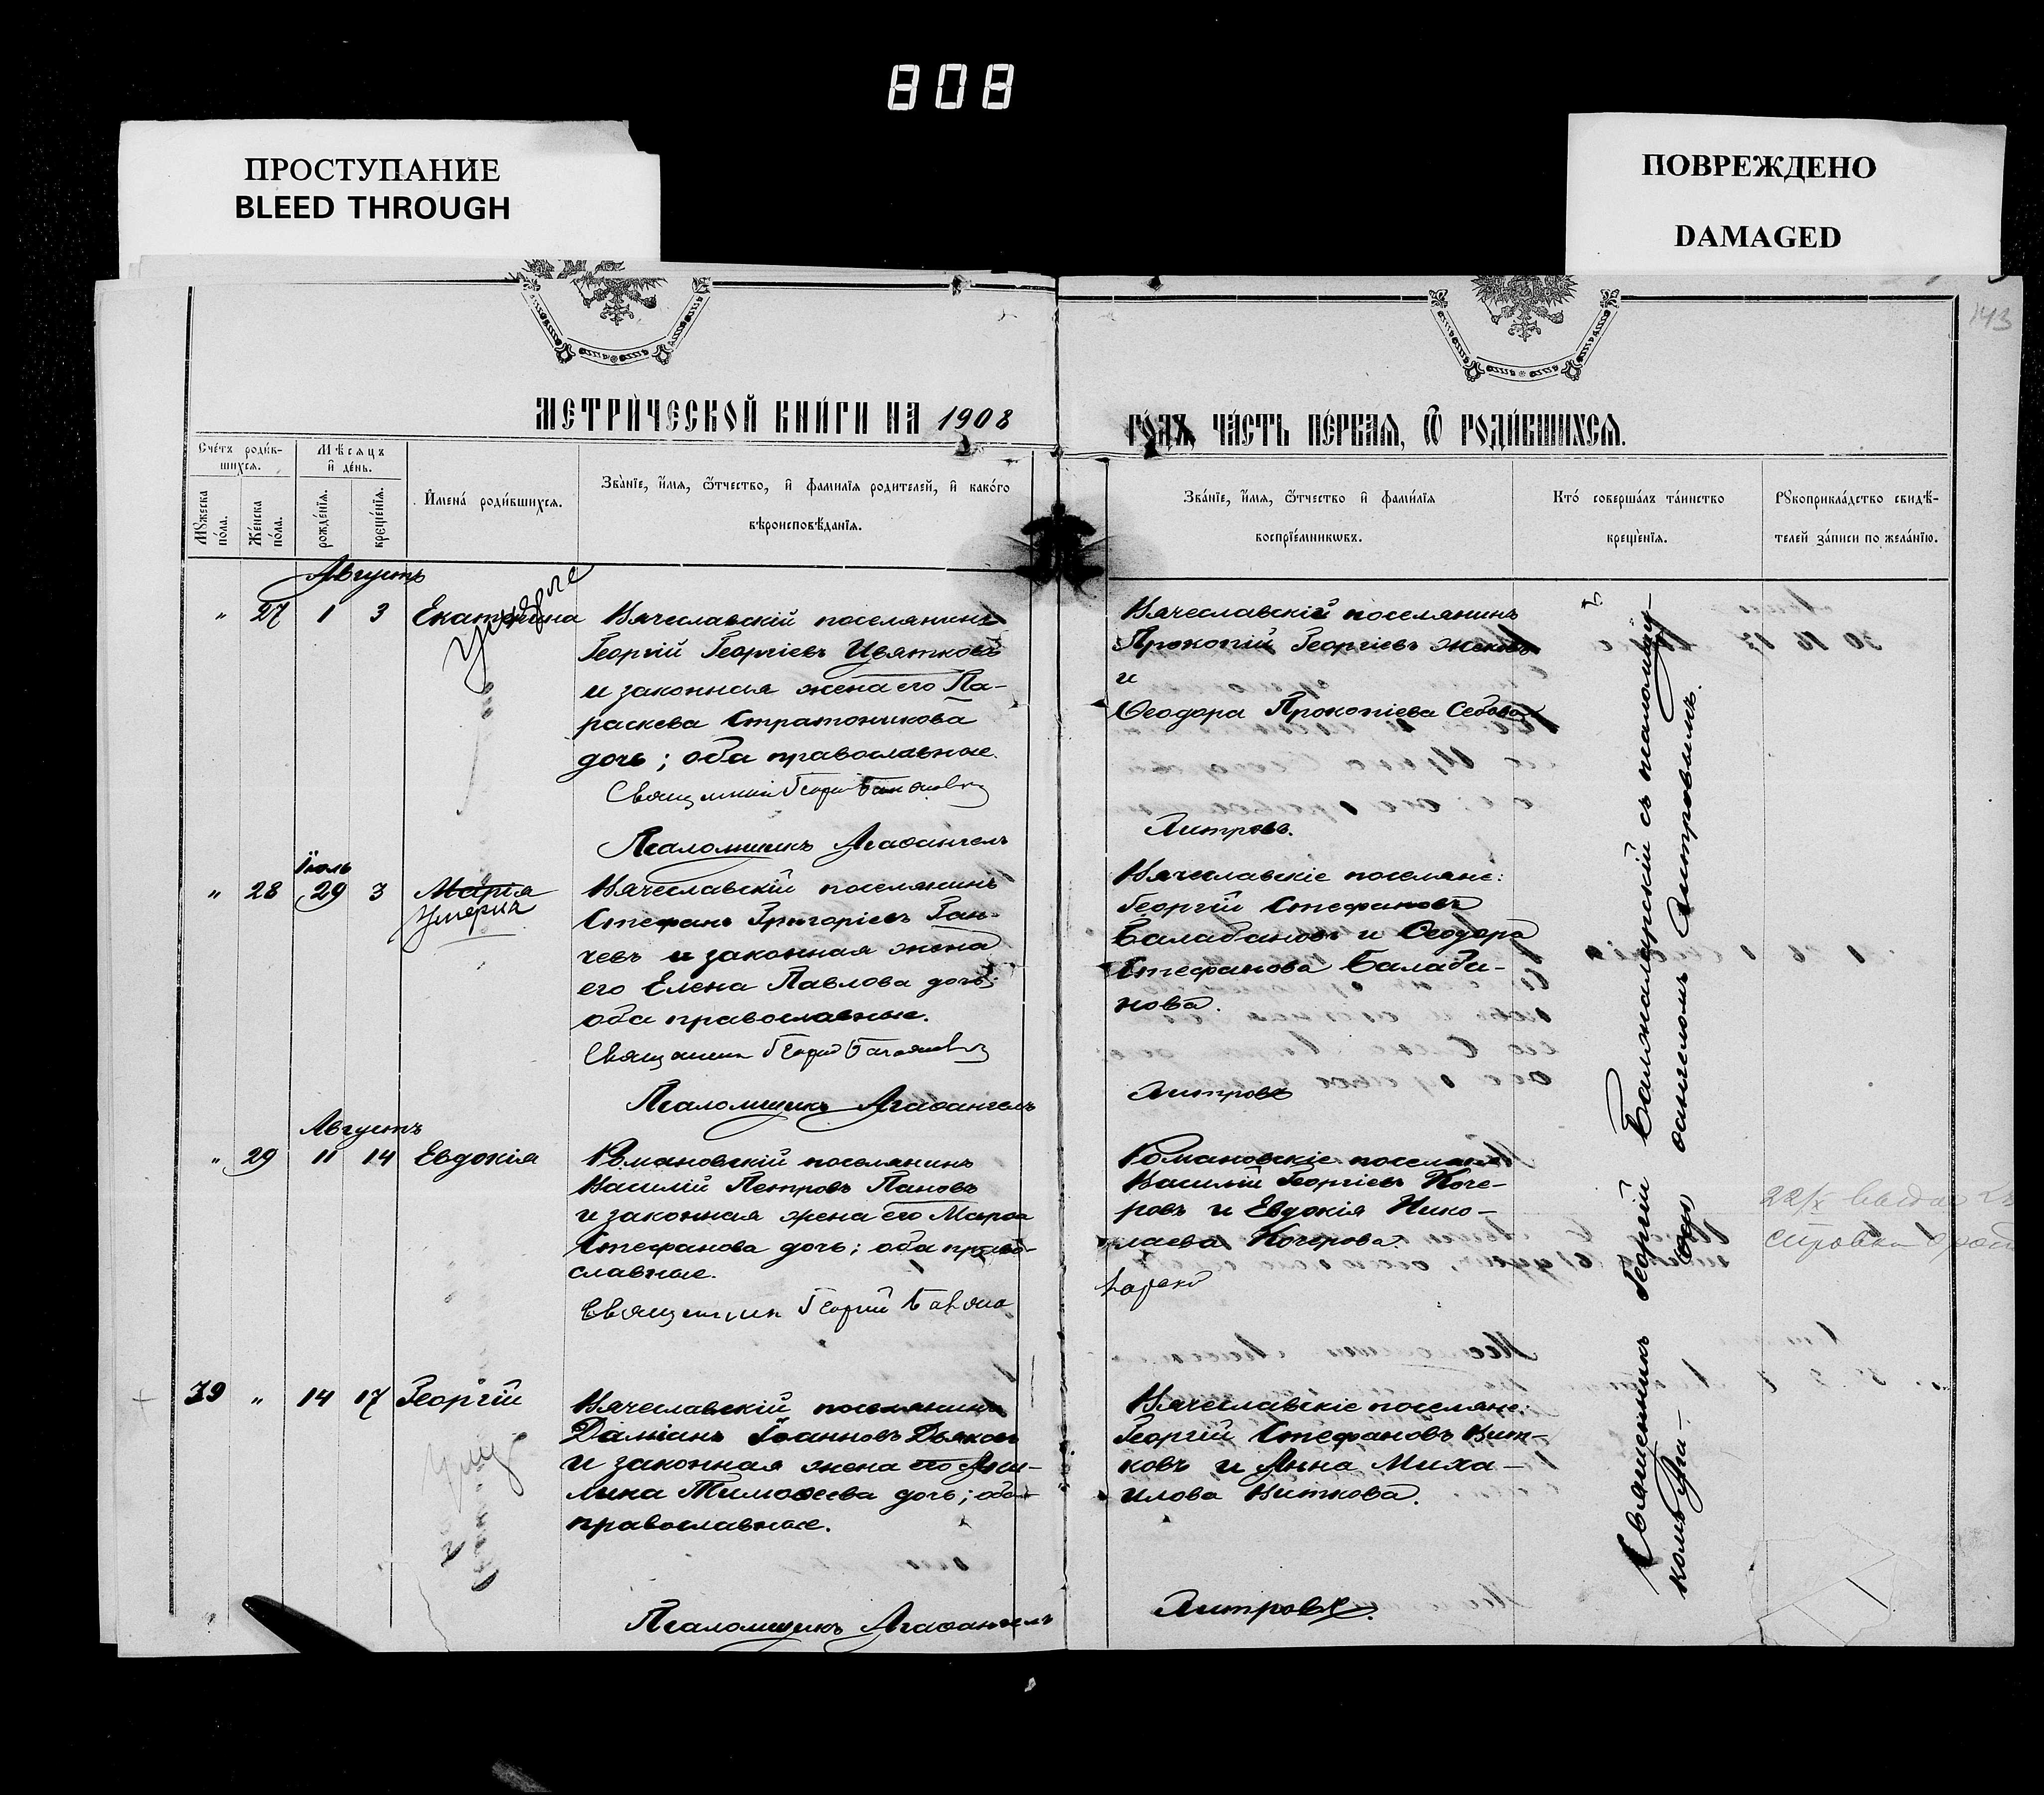 808
ПРОСТУПАНИЕ
BLEED THROUGH
ПОВРЕЖДЕНО
DAMAGED
143
МЕТРИ́ЧЕСКОЙ КНИ́ГИ НА 1908
ГО́ДЪ, ЧА́СТЬ ПЕ́РВАЯ, Ѿ РОДИ́ВШИХСЯ.
Сче́тъ роди́в-
шихся.
Мѣ́сяцъ
и҆ де́нь.
Мꙋ́жеска
по́ла.
Же́нска
по́ла.
рожде́нїя.
креще́нїя.
И҆мена̀ роди́вшихся.
Зва́нїе, и҆́мя, ѻ҆́тчество, и҆ фами́лїя роди́телей, и҆ како́гѡ
вѣроисповѣ́данїя.
Зва́нїе, и҆́мя, ѻ҆́тчество и҆ фами́лїя
воспрїе́мникѡвъ.
Кто̀ соверша́лъ та́инство
креще́нїя.
Рꙋкоприкла́дство свидѣ́-
телей за́писи по жела́нїю.
Августъ
" 27 1 3 Екатерина
Умерла
Вячеславскій поселянинъ
Георгій Георгіевъ Цвятковъ
и законная жена его Па-
раскева Стратоникова
дочь; оба православные.
Священникъ Георгій
Псаломщикъ Агаѳангелъ
Вячеславскій поселянинъ
Прокопій Георгіевъ Жековъ
и
Ѳеодора Прокопіева
Литровъ.
Іюль
" 28 29 3 Марія
Умерла
Вячеславскій поселянинъ
Стефанъ Григоріевъ Ган-
чевъ и законная жена
его Елена Павлова дочь;
оба православные.
Священникъ Георгій
Псаломщикъ Агаѳангелъ
Вячеславскіе поселяне:
Георгій Стефановъ
Балабановъ и Ѳеодора
Стефанова Балаба-
нова.
Литровъ
Августъ
" 29 11 14 Евдокія
Романовскій поселянинъ
Василій Петровъ Пановъ
и законная жена его Марѳа
Стефанова дочь; оба право-
славные.
Священникъ Георгій
Романовскіе поселяне
Василій Георгіевъ Коче-
ровъ и Евдокія Нико-
лаева Кочерова.
39 " 14 17 Георгій
Вячеславскій поселянинъ
Даміанъ Іоанновъ Дьяковъ
и законная жена его Аки-
лина Тимоѳеева дочь; оба
православные.
Псаломщикъ Агаѳангелъ
Вячеславскіе поселяне:
Георгій Стефановъ Вит-
ковъ и Анна Миха-
илова Виткова.
Литровъ.
Священникъ Георгій съ псаломщи-
комъ Ага-
ѳангеломъ Литровымъ.